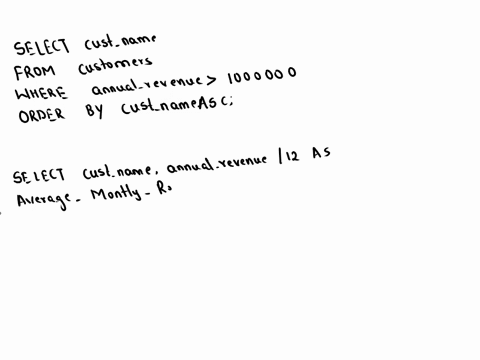 SELECT cust_name
FROM customers
WHERE annual_revenue > 1000000
ORDER BY cust_name ASC;
SELECT cust_name, annual_revenue /12 As
Average_ Montly_ R